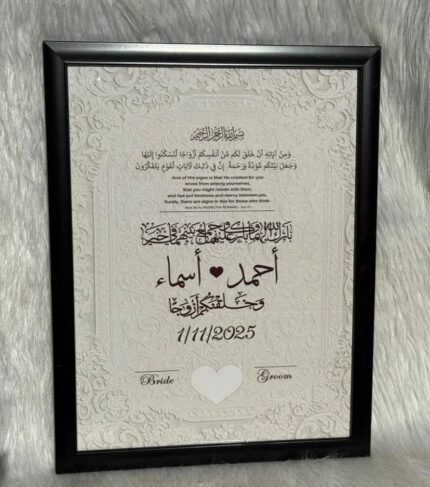 بسم الله الرحمن الرحيم
وَمِنْ آيَاتِهِ أَنْ خَلَقَ لَكُم مِّنْ أَنفُسِكُمْ أَزْوَاجًا لِّتَسْكُنُوا إِلَيْهَا
وَجَعَلَ بَيْنَكُم مَّوَدَّةً وَرَحْمَةً إِنَّ فِي ذَلِكَ لَآيَاتٍ لِّقَوْمٍ يَتَفَكَّرُونَ
And of His signs is that He created for you
wives from among yourselves,
that you might reside with them,
and has put kindness and mercy between you.
Surely, there are signs in this for those who think
بارك الله لكما وبارك عليكما وجمع بينكما في خير
أحمد أسماء
وخلقنكم أزوجا
1/11/2025
Bride Groom